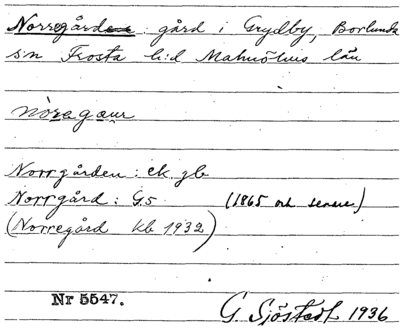 Norregård : gård i Grydby, Borlunda
s:n Frosta h:d Malmöhus län
nòregaur
Norrgården : ek. jb
Norrgård : G.5 (1865 och senare)
(Norregård kb 1932)
Nr 5547.
G. Sjöstedt 1936